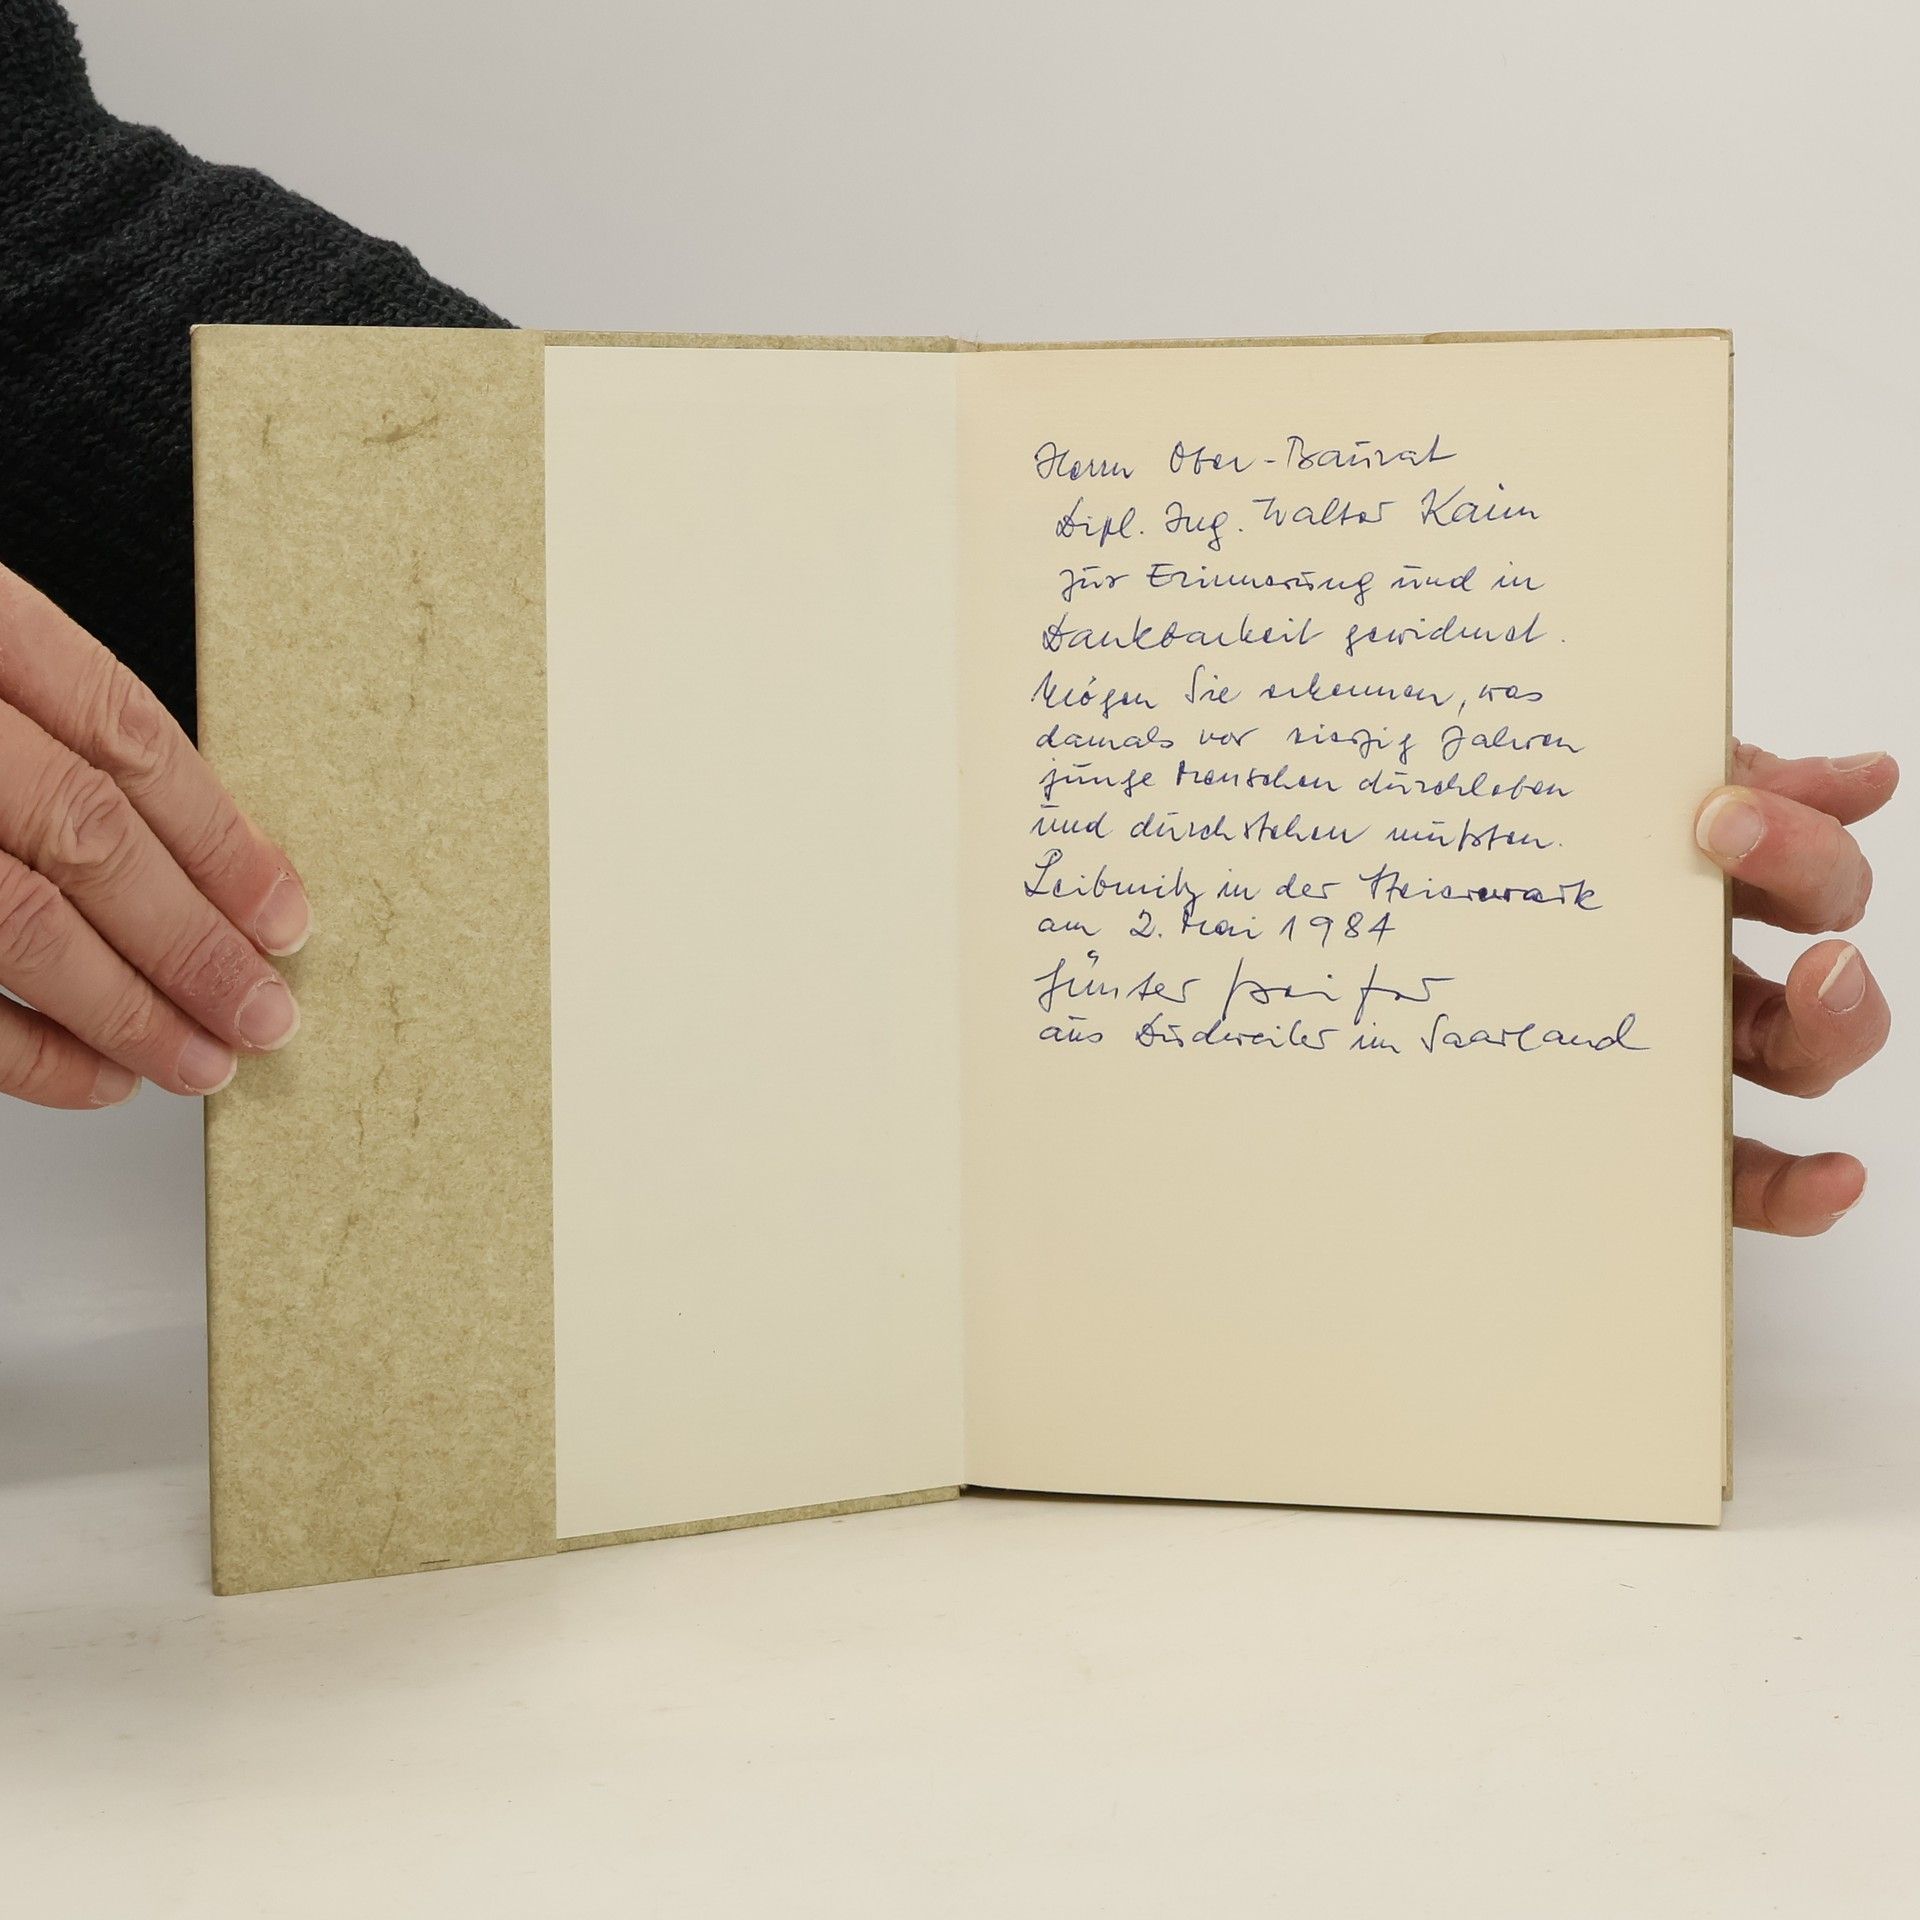 Herrn Ober-Baurat
Dipl. Ing. Walter Kaim
zur Erinnerung und in
Dankbarkeit gewidmet.
Mögen Sie erkennen, was
damals vor vierzig Jahren
junge Menschen durchleben
und durchstehen mußten.
Leibnitz in der Steiermark
am 2. Mai 1984
Günter
aus Dudweiler im Saarland